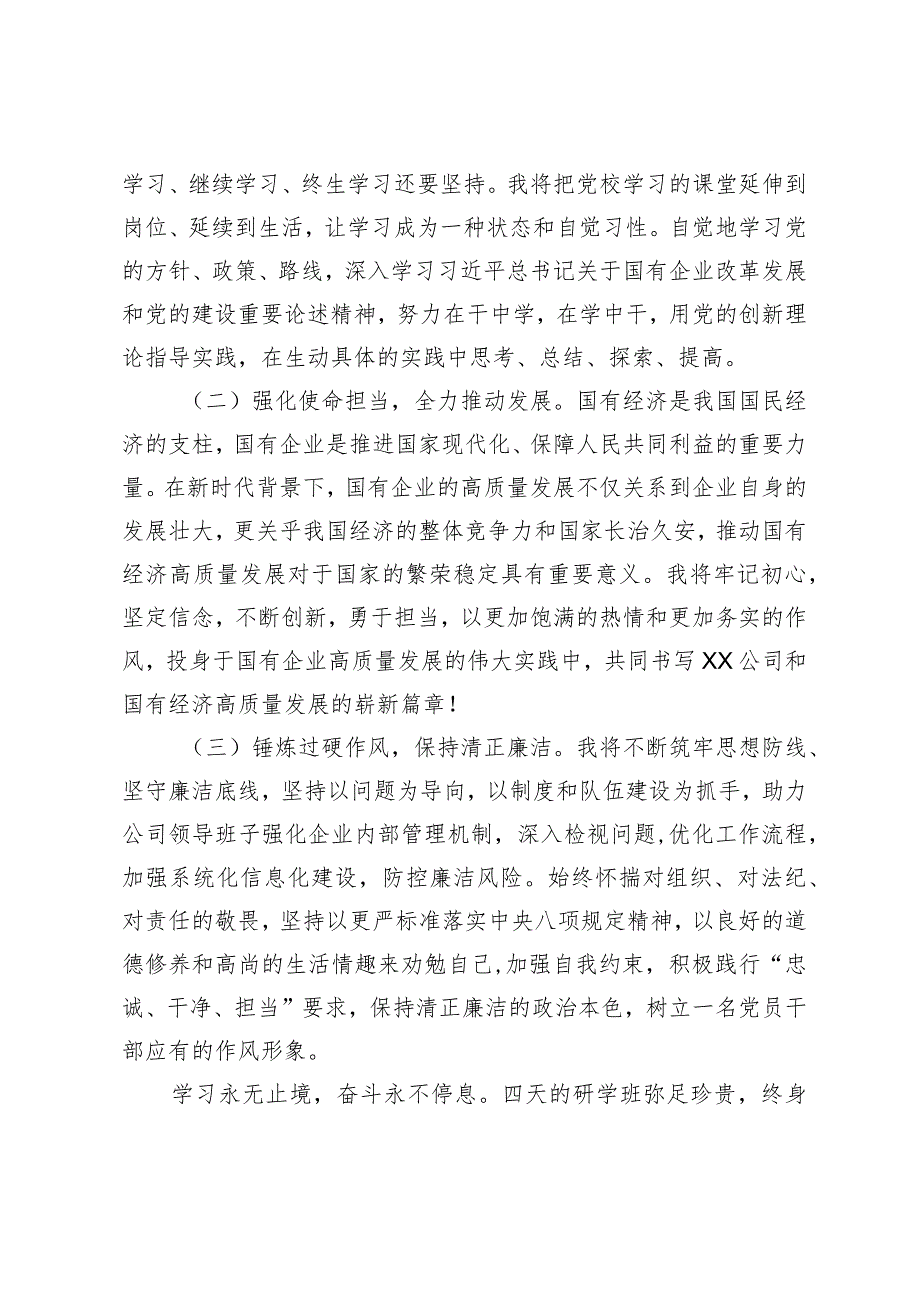 学习、继续学习、终生学习还要坚持。我将把党校学习的课堂延伸到
岗位、延续到生活，让学习成为一种状态和自觉习性。自觉地学习党
的方针、政策、路线，深入学习习近平总书记关于国有企业改革发展
和党的建设重要论述精神，努力在干中学，在学中干，用党的创新理
论指导实践，在生动具体的实践中思考、总结、探索、提高。
（二）强化使命担当，全力推动发展。国有经济是我国国民经
济的支柱，国有企业是推进国家现代化、保障人民共同利益的重要力
量。在新时代背景下，国有企业的高质量发展不仅关系到企业自身的
发展壮大，更关乎我国经济的整体竞争力和国家长治久安，推动国有
经济高质量发展对于国家的繁荣稳定具有重要意义。我将牢记初心，
坚定信念，不断创新，勇于担当，以更加饱满的热情和更加务实的作
风，投身于国有企业高质量发展的伟大实践中，共同书写XX公司和
国有经济高质量发展的崭新篇章！
（三）锤炼过硬作风，保持清正廉洁。我将不断筑牢思想防线、
坚守廉洁底线，坚持以问题为导向，以制度和队伍建设为抓手，助力
公司领导班子强化企业内部管理机制，深入检视问题,优化工作流程，
加强系统化信息化建设，防控廉洁风险。始终怀揣对组织、对法纪、
对责任的敬畏，坚持以更严标准落实中央八项规定精神，以良好的道
德修养和高尚的生活情趣来劝勉自己,加强自我约束，积极践行“忠
诚、干净、担当”要求，保持清正廉洁的政治本色，树立一名党员干
部应有的作风形象。
学习永无止境，奋斗永不停息。四天的研学班弥足珍贵，终身